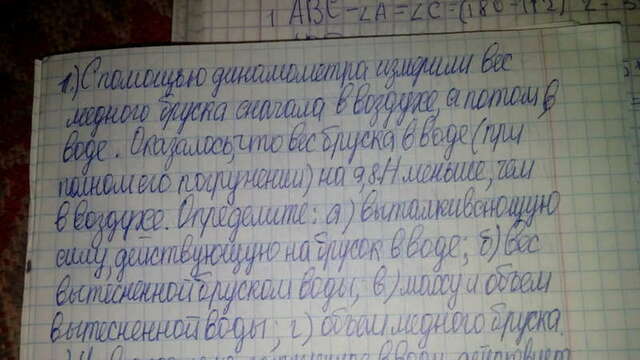 1 ABC - ∠A = ∠C = (180 -
1.) С помощью динамометра измерили вес
медного бруска сначала в воздухе, а потом в
воде. Оказалось, что вес бруска в воде (при
полном его погружении) на 9,8Н меньше, чем
в воздухе. Определите: а) выталкивающую
силу, действующую на брусок в воде; б) вес
вытесненной бруском воды; в) массу и объем
вытесненной воды; г) объем медного бруска.